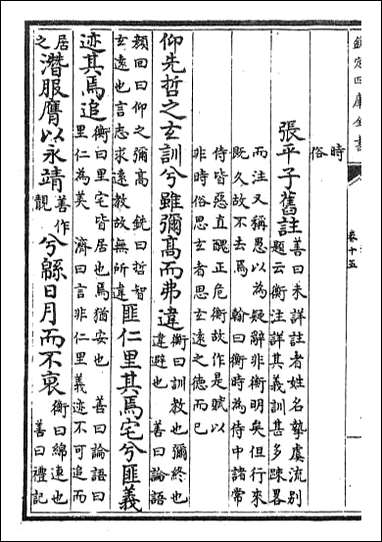 欽定四庫全書
卷十五
時
俗
張平子舊註善曰未詳註者姓名摯虞流别
題云衡注詳其義訓甚多踈畧
而注又稱愚以為疑辭非衡明矣但行來
既久故不去焉 翰曰衡時為侍中諸常
侍皆惡直醜正危衡故作是賦以
非時俗思玄者思玄逺之德而已
仰先哲之玄訓兮雖彌髙而弗違衡曰訓教也彌終也
違避也 善曰論語
顔回曰仰之彌髙 銑曰哲智
玄逺也言志求逺教故無所違匪仁里其焉宅兮匪義
迹其焉追衡曰里宅皆居也焉猶安也 善曰論語曰
里仁為美 濟曰言非仁里義迹不可追而
居之潛服膺以永靖善作靚兮緜日月而不衰衡曰綿連也
善曰禮記